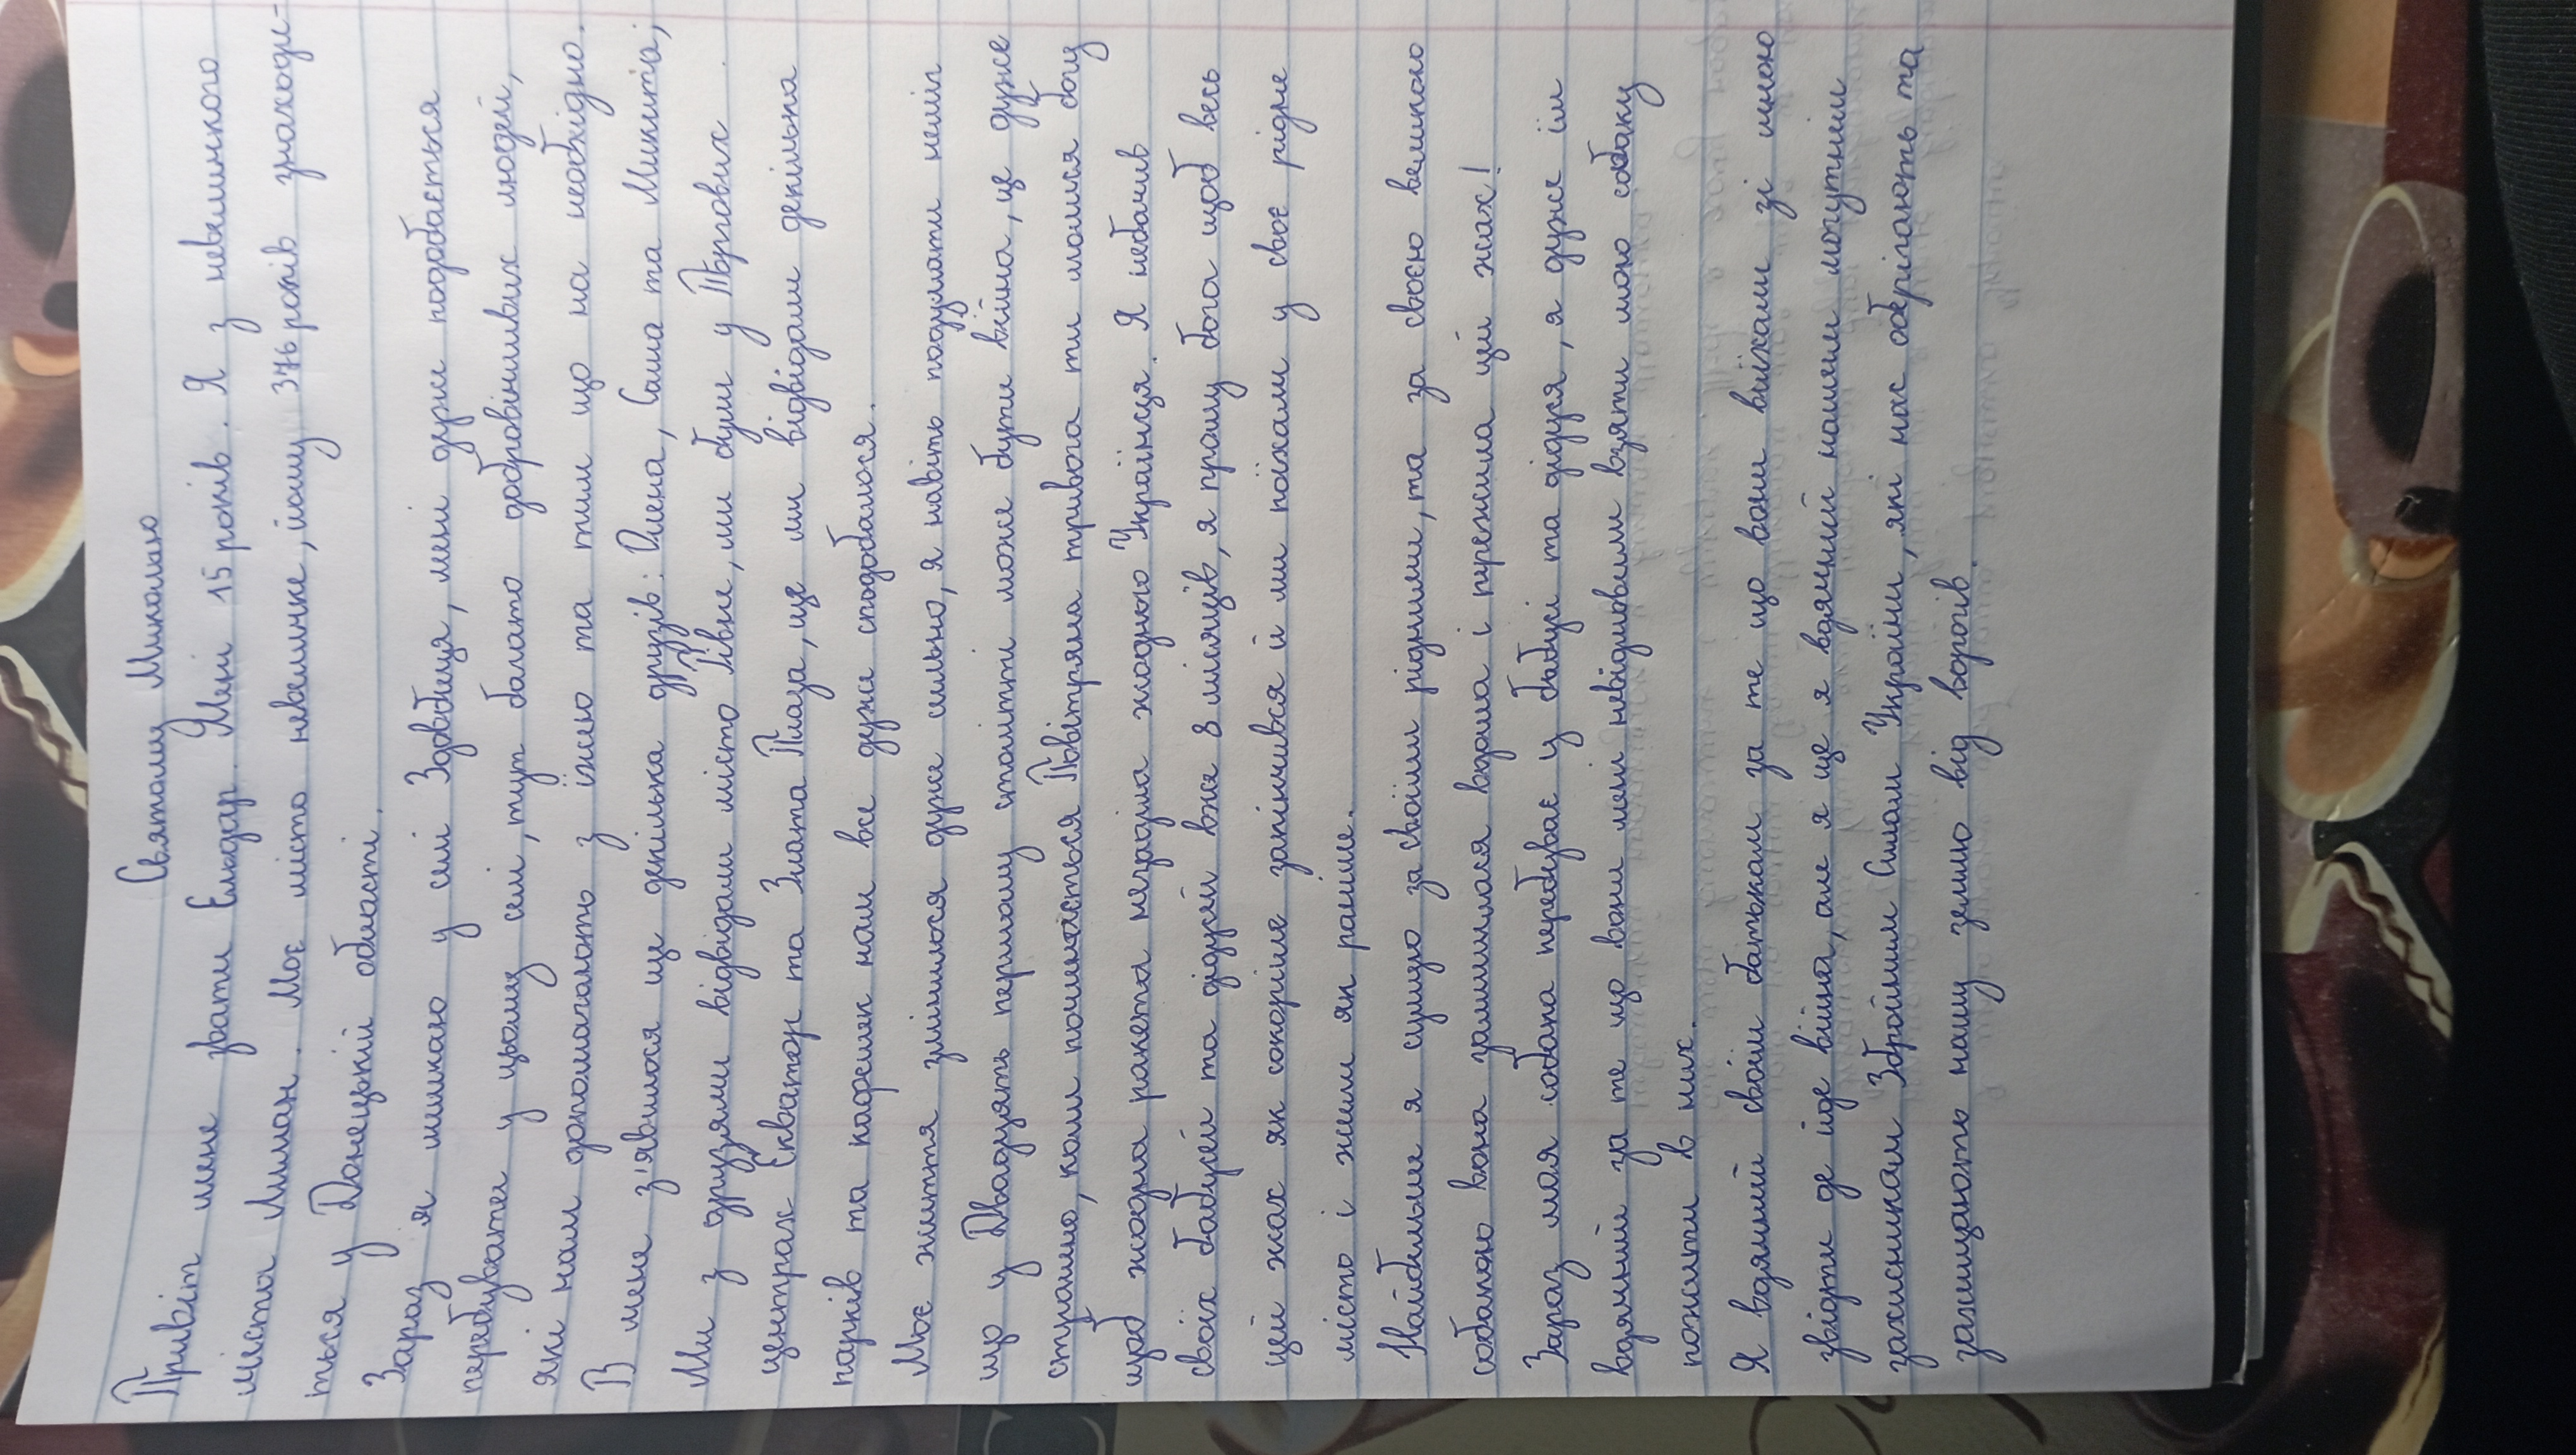 Святому Миколаю
Привіт мене звати Ельдар. Мені 15 років. Я з невеличкого
міста Лиман. Моє місто невеличке, йому 376 років знаходи-
ться у Донецькій області.
Зараз я мешкаю у селі Здовбиця, мені дуже подобається
перебувати у цьому селі, тут багато добровінливих людей,
які нам допомагають з їжею та тим що на необхідно.
В мене з'явилося ще декілька друзів: Олена, Саша та Микита;
Ми з друзями відвідали місто Рівне, ми були у Торгових
центрах Екватор та Злата Плаза, ще ми відвідали декілька
парків та кафешек нам все дуже сподобалося.
Моє життя змінилося дуже сильно, я навіть подумати неміг
що у Двадцять першому столітті може бути війна, це дуже
страшно, коли починається Повітряна тривога ти молися богу
щоб жодна ракета незаділа жодного Українця. Я небачив
своїх бабусей та дідусей вже 8 місяців, я прошу бога щоб весь
цей жах як скоріше закінчився й ми поїхали у своє рідне
місто і жили як раніше.
Найбільше я сумую за своїми рідними, та за своєю великою
собакою вона залишилася вдома і пережила цей жах!
Зараз моя собака перебуває у бабусі та дідуся, я дуже їм
вдячний за те що вони мені невідмовили взяти мою собаку
пожити в них.
Я вдячний своїм батькам за те що вони виїхали зі мною
звідти де йде війна, але я ще я вдячний нашим могутнім
захисникам Збройним Силам України, які нас оберігають та
захищають нашу землю від ворогів.